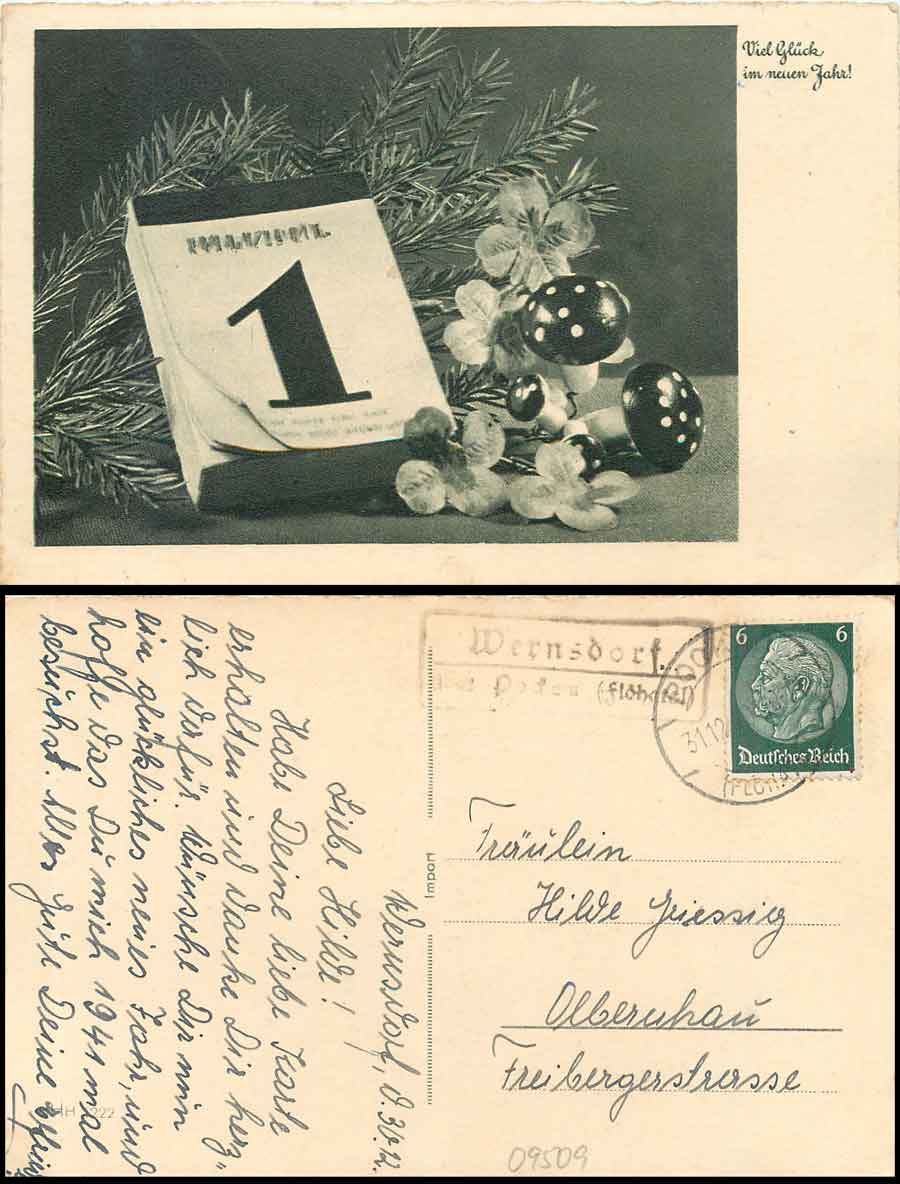 Viel Glück
im neuen Jahr!
1
Wernsdorf
(Flöhatal)
31.12
6 6
Deutsches Reich
Wernsdorf, d. 30.12.
Liebe Hilde!
Habe Deine liebe Karte
erhalten und danke Dir herz"
lich dafür. Wünsche Dir nun
ein glückliches neues Jahr, und
hoffe das Du mich 1941 mal
besuchst. Alles Gute Deine
Import
HH 222
Fräulein
Hilde Griessig
Olbernhau
Freibergerstrasse
09509